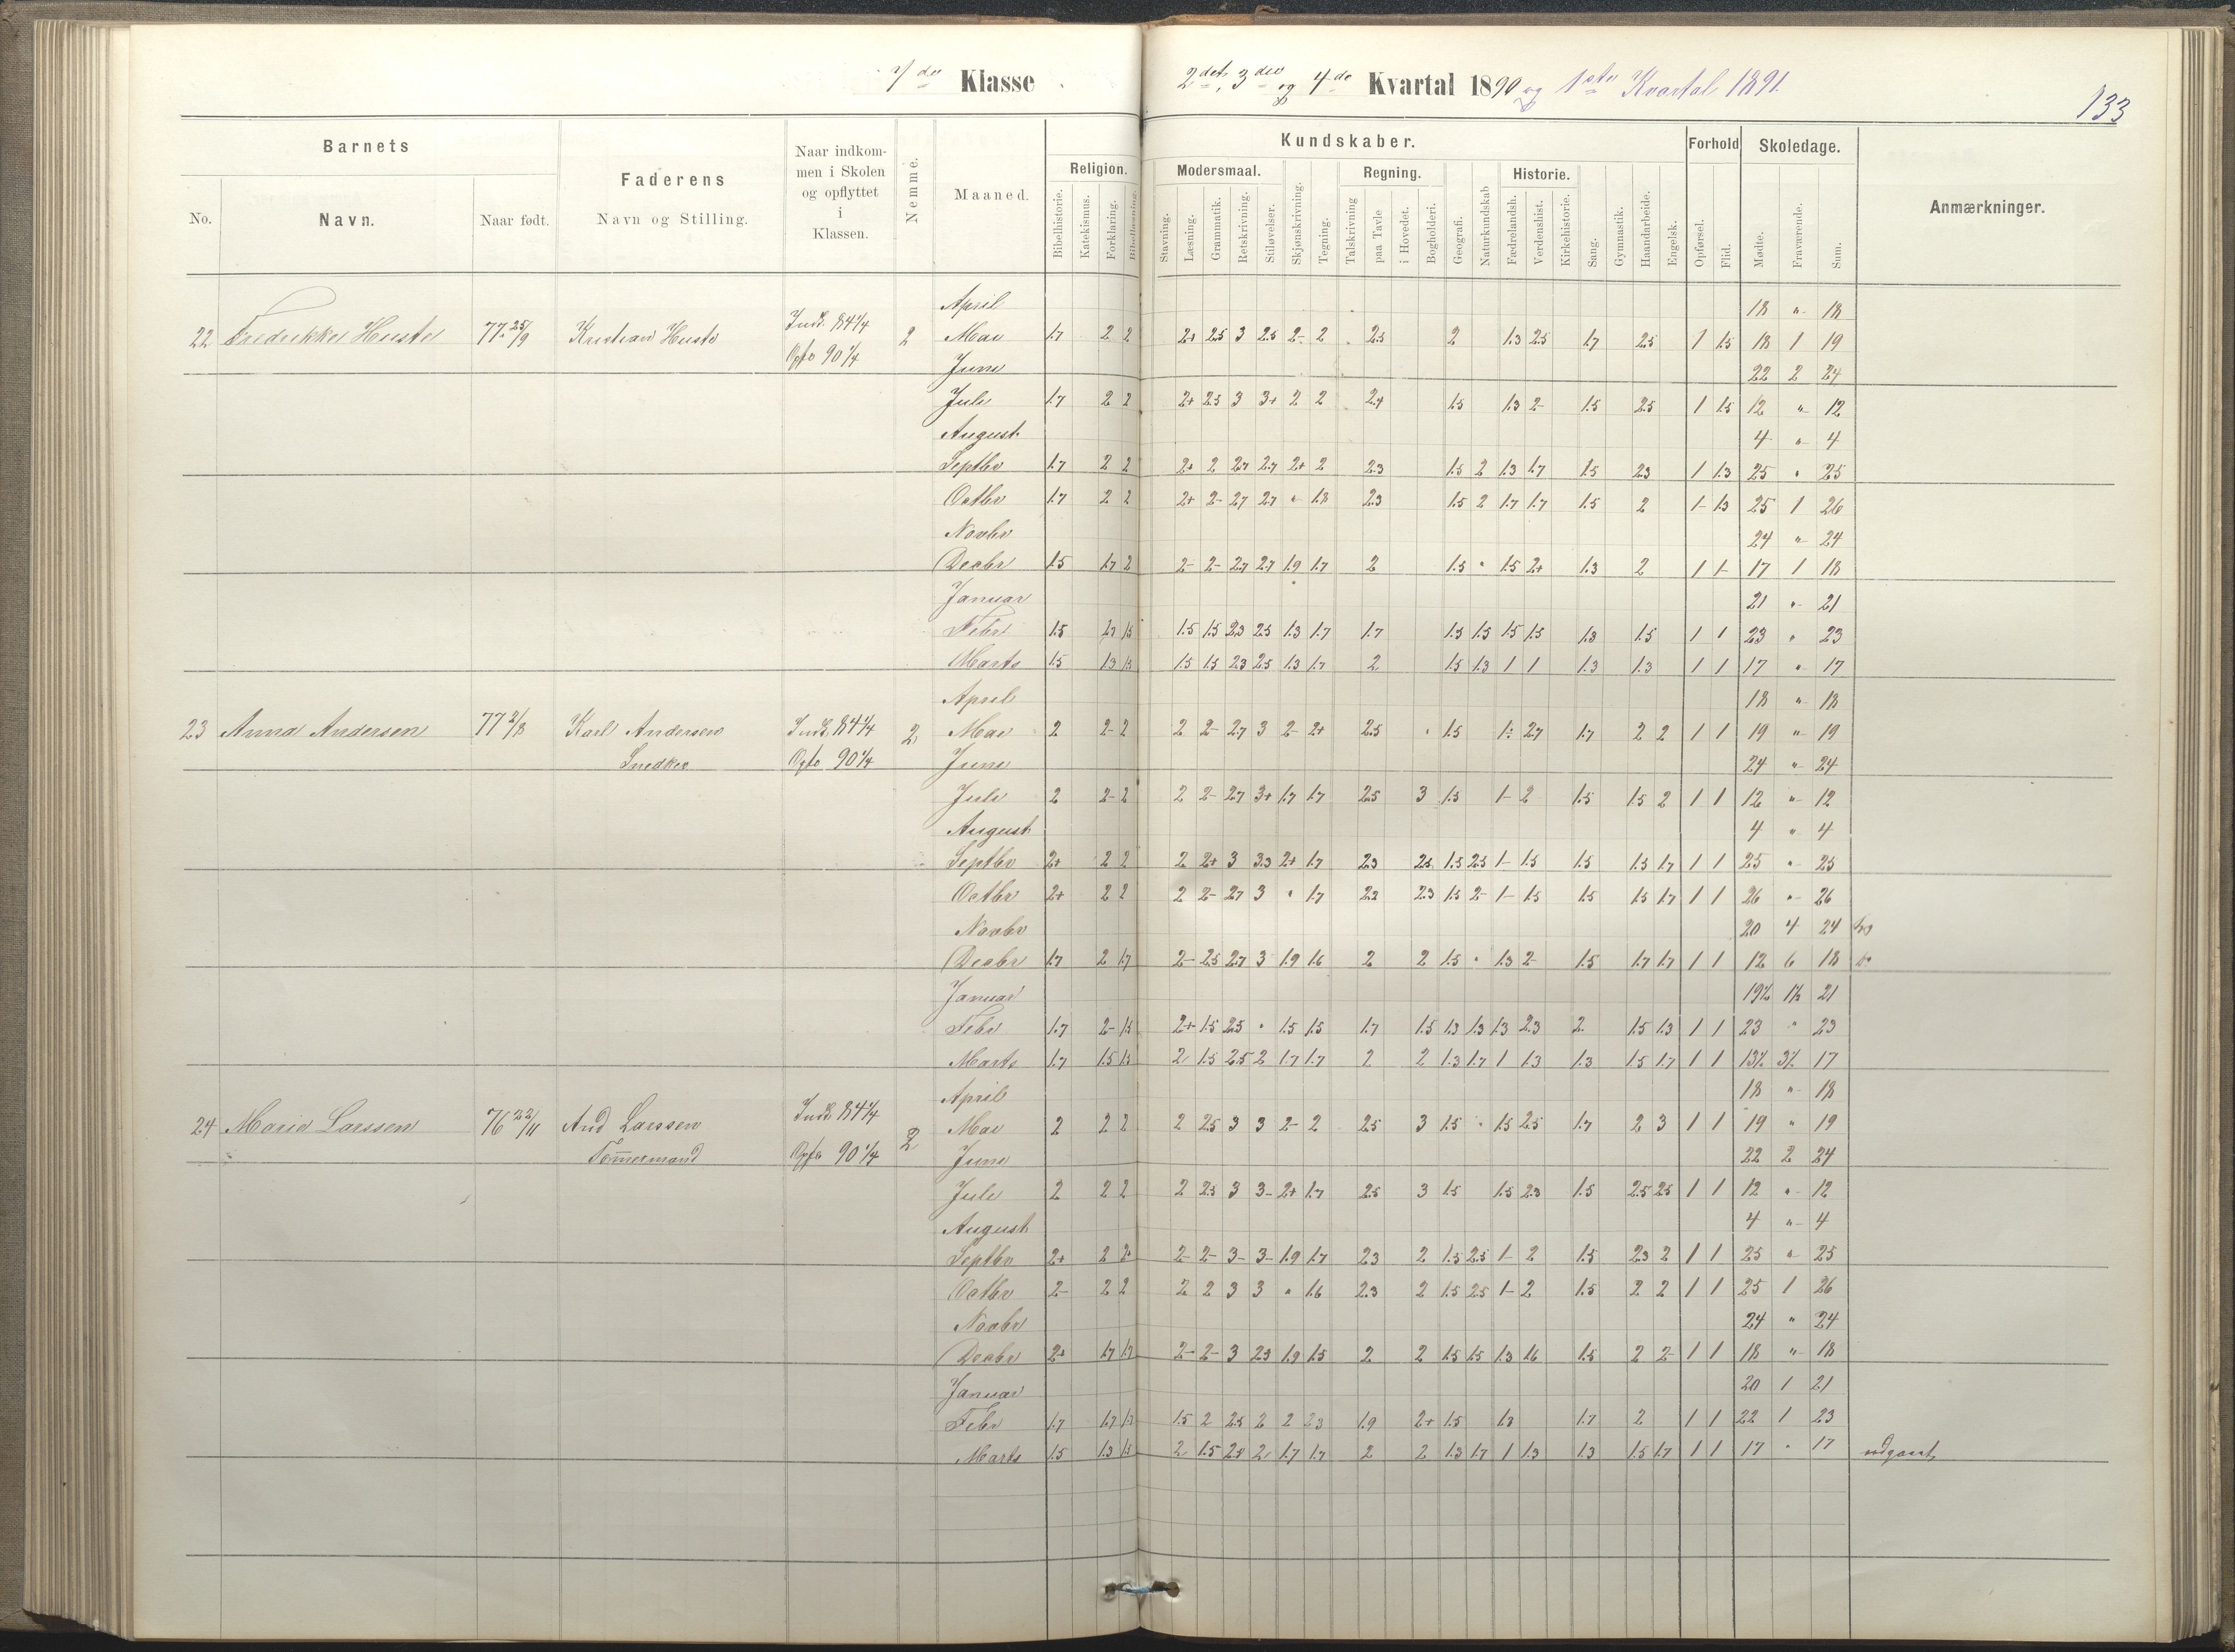 7de Klasse
2det, 3die og 4de Kvartal 1890 og 1ste Kvartal 1891.
133
Barnets
No.
Navn.
Naar født.
Faderens
Navn og Stilling.
Naar indkom-
men i Skolen
og opflyttet
i
Klassen.
Nemme.
Maaned.
Kundskaber.
Religion.
Bibelhistorie.
Katekismus.
Forklaring.
Bibellæsning.
Modersmaal.
Stavning.
Læsning.
Grammatik.
Retskrivning.
Stiløvelser.
Skjønskrivning.
Tegning.
Regning.
Talskrivning
paa Tavle
i Hovedet.
Bogholderi.
Geografi.
Naturkundskab
Historie.
Fædrelandsh.
Verdenshist.
Kirkehistorie.
Sang.
Gymnastik.
Haandarbeide.
Engelsk.
Forhold
Opførsel.
Flid.
Skoledage.
Mødte.
Fraværende.
Sum.
Anmærkninger.
April 18 " 18
22 Fredrikke Heiste 77 25/9 Kristian Heiste Indk. 84 1/4 2 Mai 1.7 2 2 2+ 2.5 3 2.5 2- 2 2.5 2 1.3 2.5 1.7 2.5 1 1.5 18 1 19
Opfl. 90 1/4 Juni 22 2 24
Juli 1.7 2 2 2+ 2.5 3 3+ 2 2 2.4 1.5 1.3 2- 1.5 2.5 1 1.5 12 " 12
August 4 " 4
Septbr 1.7 2 2 2+ 2 2.7 2.7 2+ 2 2.3 1.5 2 1.3 1.7 1.5 2.3 1 1.3 25 " 25
Octbr 1.7 2 2 2+ 2- 2.7 2.7 " 1.8 2.3 1.5 2 1.7 1.7 1.5 2 1- 1.3 25 1 26
Novbr 24 " 24
Decbr 1.5 1.7 2 2- 2- 2.7 2.7 1.9 1.7 2 1.5 " 1.5 2+ 1.3 2 1 1- 17 1 18
Januar 21 " 21
Febr 1.5 2.7 1.5 1.5 1.5 2.3 2.5 1.3 1.7 1.7 1.5 1.5 1.5 1.5 1.3 1.5 1 1 23 " 23
Marts 1.5 1.3 1.5 1.5 1.5 2.3 2.5 1.3 1.7 2 1.5 1.3 1 1 1.3 1.3 1 1 17 " 17
April 18 " 18
23 Anna Andersen 77 2/8 Karl Andersen Indk. 84 1/4 2 Mai 2 2- 2 2 2- 2.7 3 2- 2+ 2.5 " 1.5 1- 2.7 1.7 2 2 1 1 19 " 19
Snedker Opfl. 90 1/4 Juni 24 " 24
Juli 2 2- 2 2 2- 2.7 3+ 1.7 1.7 2.5 3 1.5 1- 2 1.5 1.5 2 1 1 12 " 12
August 4 " 4
Septbr 2+ 2 2 2 2+ 3 3.3 2+ 1.7 2.3 2.5 1.5 2.5 1- 1.5 1.5 1.5 1.7 1 1 25 " 25
Octbr 2+ 2 2 2 2- 2.7 3 " 1.7 2.3 2.3 1.5 2- 1- 1.5 1.5 1.5 1.7 1 1 26 " 26
Novbr 20 4 24
Decbr 1.7 2 1.7 2- 2.5 2.7 3 1.9 1.6 2 2 1.5 " 1.3 2- 1.5 1.7 1.7 1 1 12 6 18
Januar 19½ 1½ 21
Febr 1.7 2- 1.5 2+ 1.5 2.5 " 1.5 1.5 1.7 1.5 1.3 1.3 1.3 2.3 2 1.5 1.3 1 1 23 " 23
Marts 1.7 1.5 1.5 2 1.5 2.5 2 1.7 1.7 2 2 1.3 1.7 1 1.3 1.3 1.5 1.7 1 1 13½ 3½ 17
April 18 " 18
24 Marie Larssen 76 22/11 And Larssen Indk. 84 1/4 2 Mai 2 2 2 2 2.5 3 3 2- 2 2.5 3 1.5 " 1.5 2.5 1.7 2 3 1 1 19 " 19
Tømmermand Opfl. 90 1/4 Juni 22 2 24
Juli 2 2 2 2 2.5 3 3- 2+ 1.7 2.5 3 1.5 1.5 2.3 1.5 2.5 2.5 1 1 12 " 12
August 4 " 4
Septbr 2+ 2 2+ 2- 2- 3- 3- 1.9 1.7 2.3 2 1.5 2.5 1- 2 1.5 2.3 2 1 1 25 " 25
Octbr 2- 2 2 2 2 3 3 " 1.6 2.3 2 1.5 2.5 1- 2 1.5 2 2 1 1 25 1 26
Novbr 24 " 24
Decbr 2+ 1.7 1.7 2- 2- 3 2.3 1.9 1.5 2 2 1.5 1.5 1.3 1.6 1.5 2 2- 1 1 18 " 18
Januar 20 1 21
Febr 1.7 1.7 1.7 1.5 2 2.5 2 2 2.3 1.9 2+ 1.5 1.3 1.7 2 1 1 22 1 23
Marts 1.5 1.3 1.5 2 1.5 2.8 2 1.7 1.7 2 2 1.3 1.7 1 1.3 1.3 1.5 1.7 1 1 17 " 17 udgaat